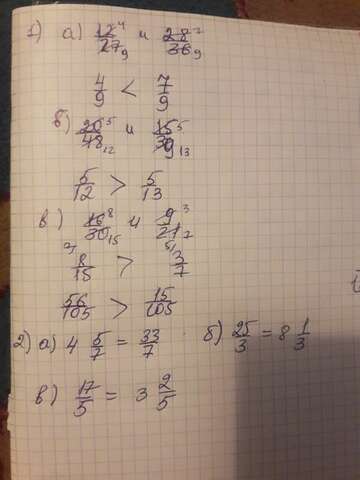 1) а) 12/27 4/9 и 28/36 7/9
4/9 < 7/9
б) 20/48 5/12 и 15/39 5/13
5/12 > 5/13
в) 16/30 8/15 и 9/21 3/7
8/15 > 3/7
56/105 > 15/105
2) а) 4 5/7 = 33/7 б) 25/3 = 8 1/3
в) 17/5 = 3 2/5